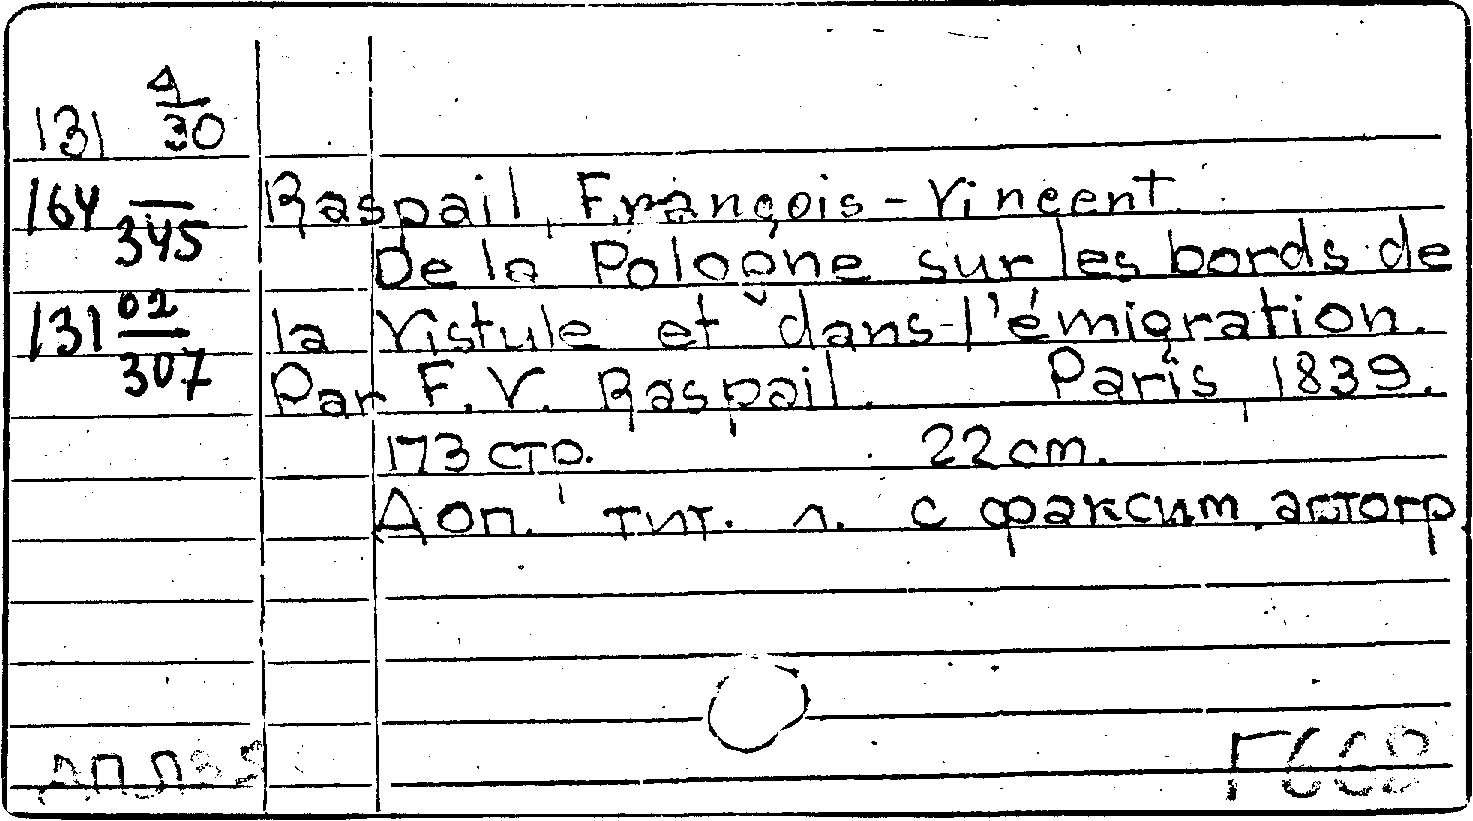 131 Д/30
164 —/345
Raspail, François-Vincent
De la Pologne sur les bords de
131 02/307
la Vistule et dans l'émigration.
Par F. V. Raspail. Paris, 1839.
173 стр. 22 cm.
Доп. тит. л. с факсим. автогр.